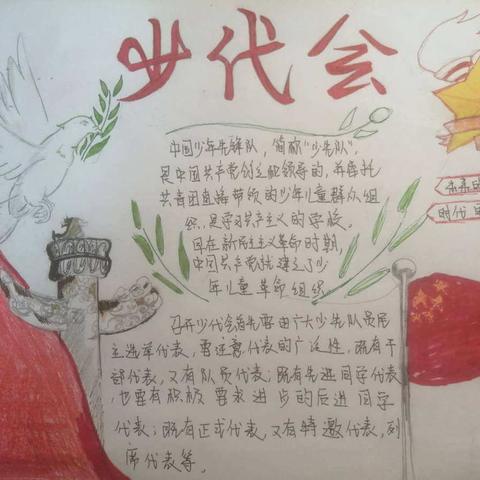 少代会
中国少年先锋队，简称"少先队"，
是中国共产党创立和领导的，并委托
共青团直接带领的少年儿童群众组
织，是学习共产主义的学校。
早在新民主主义革命时期，
中国共产党就建立了少
年儿童革命组织
召开少代会首先要由广大少先队员民
主选举代表，要注意代表的广泛性，既有干
部代表，又有队员代表；既有先进同学代表，
也要有积极要求进步的后进同学
代表；既有正式代表，又有特邀代表，列
席代表等。
时代